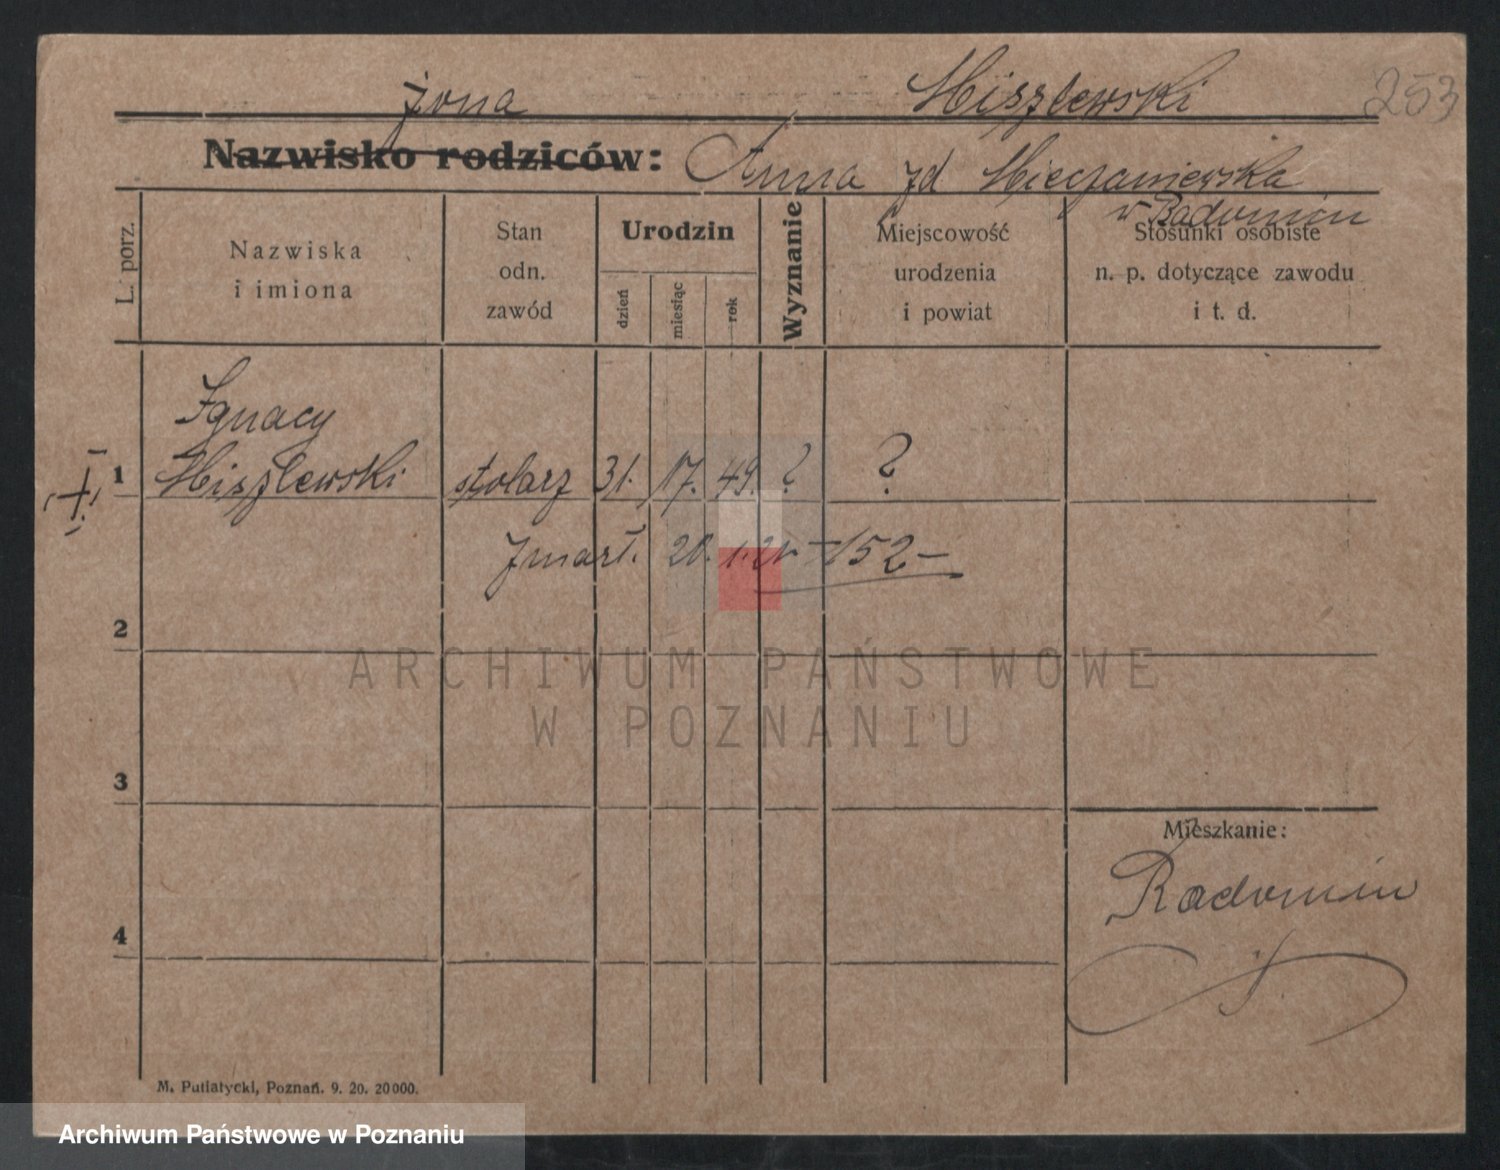 żona Miszlewski 253
Nazwisko rodziców: Anna zd Mieczaniewska
w Radomin
L. porz.
Nazwiska
i imiona
Stan
odn.
zawód
Urodzin
dzień
miesiąc
rok
Wyznanie
Miejscowość
urodzenia
i powiat
Stosunki osobiste
n. p. dotyczące zawodu
i t. d.
Ignacy
1 Miszlewski stolarz 31. 17. 49. ? ?
zmarł. 20. 1. 21. – 152 –
2
ARCHIWUM PAŃSTWOWE
W POZNANIU
3
Mieszkanie:
Radomin
4
M. Putiatycki, Poznań. 9. 20. 20000.
Archiwum Państwowe w Poznaniu